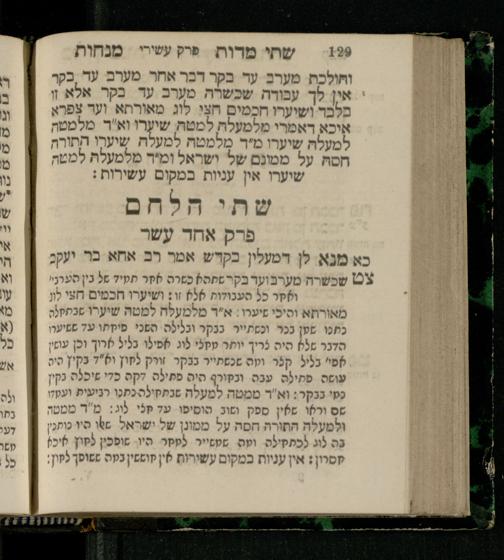 129 שתי מדות פרק עשירי מנחות
והולכת מערב עד בקר דבר אחר מערב עד בקר
אין לך עבודה שכשרה מערב עד בקר אלא זו
בלבד ושיערו חכמים חצי לוג מאורתא ועד צפרא
איכא דאמרי מלמעלה למטה שיערו וא״ד מלמטה
למעלה שיערו מ״ד מלמטה למעלה שיערו התורה
חסה על ממונם של ישראל ומ״ד מלמעלה למטה
שיערו אין עניות במקום עשירות :
שתי הלחם
פרק אחד עשר
כא מנא לן דמעלין בקדש אמר רב אחא בר יעקב
צט שכשרה מערב ועד בקר שתהא כשרה אחר תמיד של בין הערבי׳
ואחר כל העבודות אלא זו : ושיערו חכמים חצי לוג
מאורתא והיכי שיערו : א״ד מלמעלה למטה שיערו שבתחלה
נתנו שמן בנר ונשתייר בבקר ובלילה השני פיחתו עד ששיערו
הדבר שלא היה צריך יותר מחצי לוג אפילו בליל ארוך וכן עושין
אפי׳ בליל קצר ומה שנשתייר בבקר זורק לחוץ וא״ד בקיץ היה
עושה פתילה עבה ובחורף היה פתילה דקה כדי שיכלה בקיץ
נמי בבקר : וא״ד ממטה למעלה שבתחילה נתנו רביעית ועמדו
שם וראו שאין ספק ושוב הוסיפו עד חצי לוג : מ״ד ממטה
ולמעלה התורה חסה על ממונן של ישראל שאו היו נותנין
בה לוג לכתחילה ומה שמשייר למחר היו שופכין לחוץ איכא
חסרון : אין עניות במקום עשירות אין חוששין במה ששופך לחוץ :